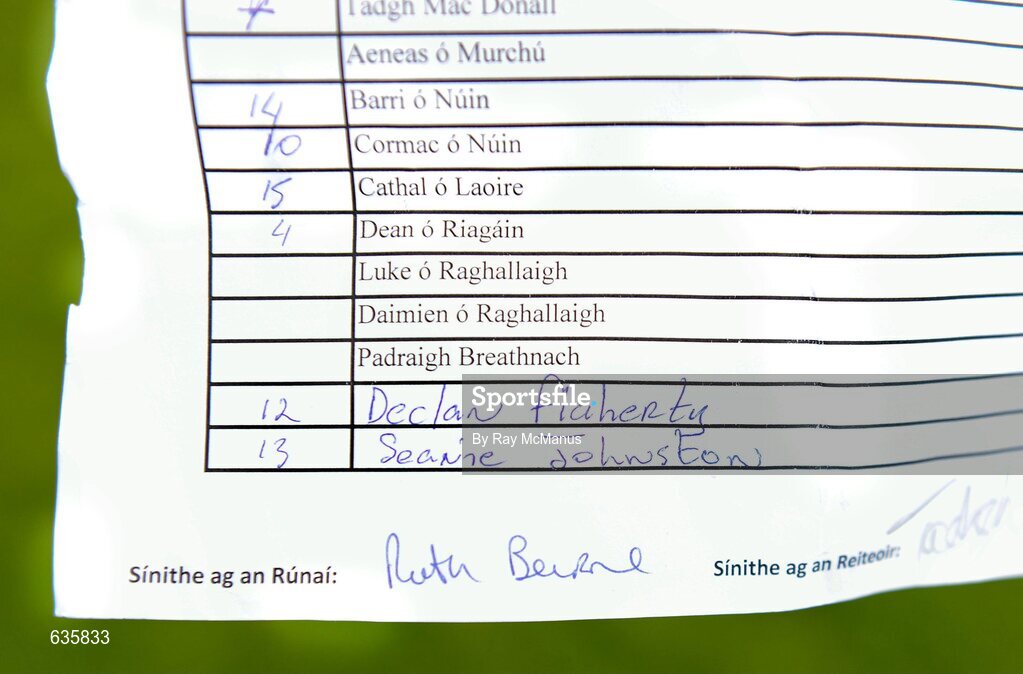 Tadgh Mac Dónaill
Aeneas ó Murchú
14 Barri ó Núin
10 Cormac ó Núin
15 Cathal ó Laoire
4 Dean ó Riagáin
Luke ó Raghallaigh
Daimien ó Raghallaigh
Padraigh Breathnach
12 Declan Flaherty
13 Seanie Johnston
Sportsfile
By Ray McManus
Sínithe ag an Rúnaí: Ruth Beirne
Sínithe ag an Reiteoir:
635833